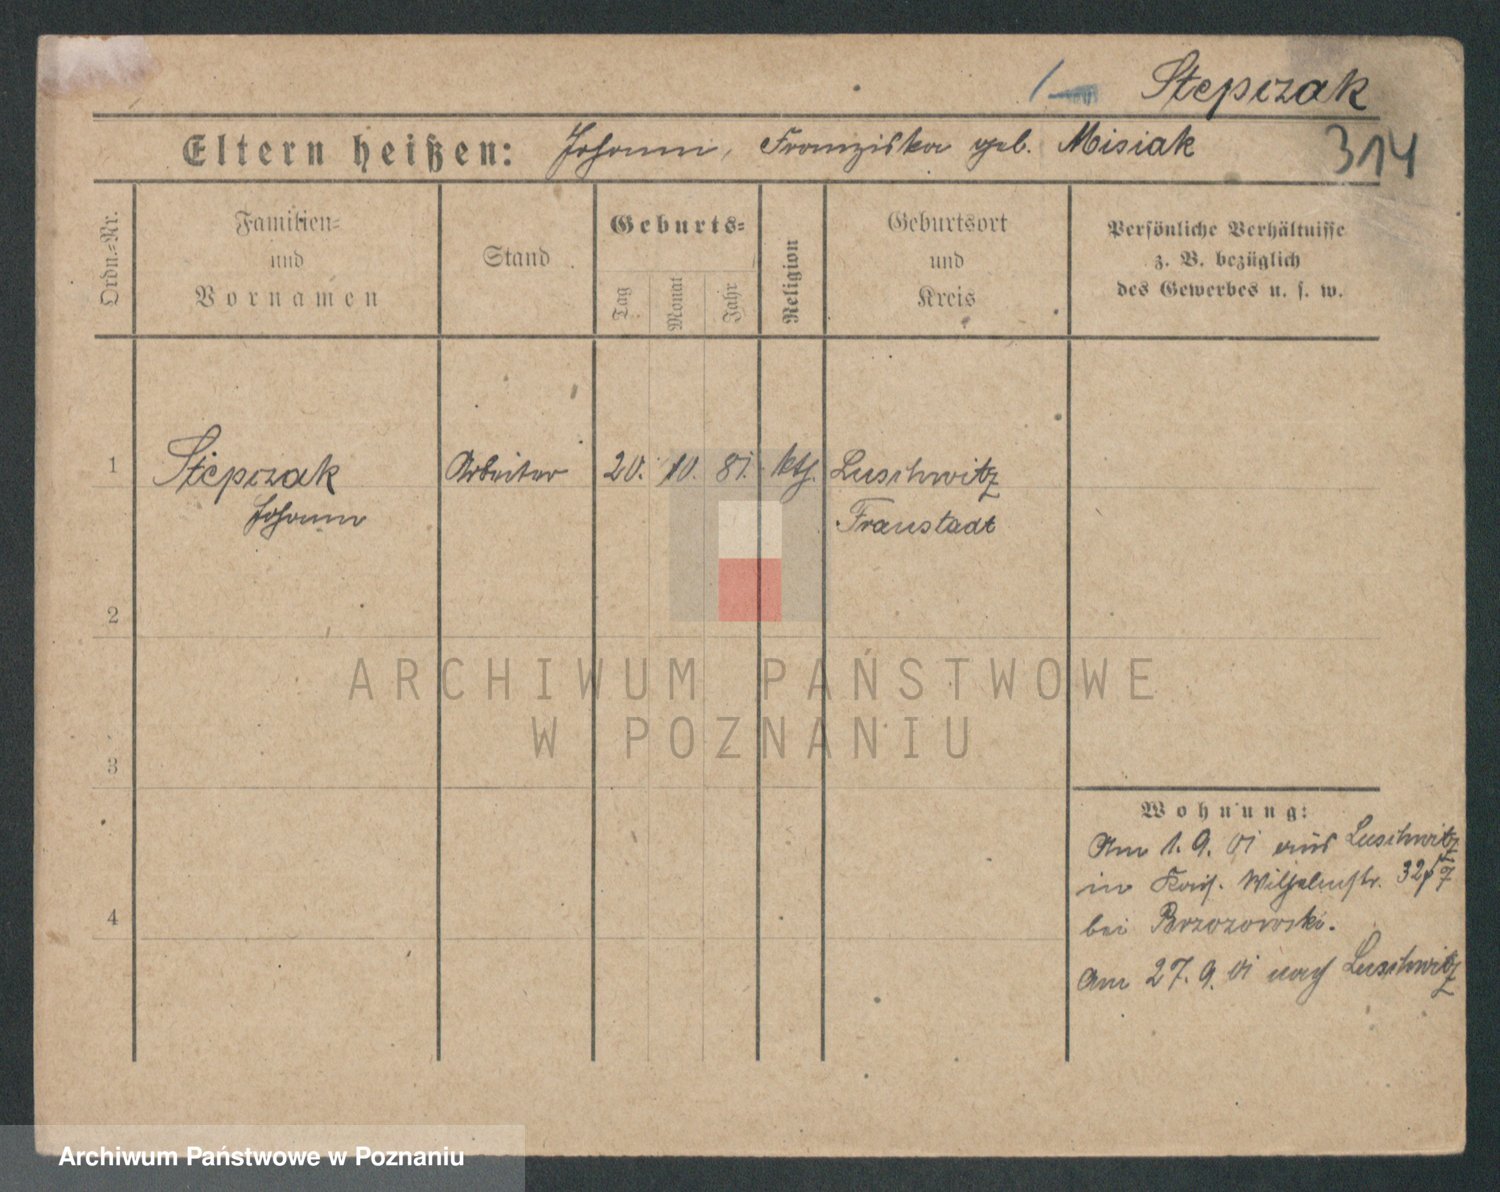 Stepczak
Eltern heißen: Johann, Franziska geb. Misiak
314
Ordn.-Nr.
Familien-
und
Vornamen
Stand
Geburts-
Tag
Monat
Jahr
Religion
Geburtsort
und
Kreis
Persönliche Verhältnisse
z. B. bezüglich
des Gewerbes u. s. w.
1 Stepczak Arbeiter 20. 10. 81. kth. Luschwitz
Johann Fraustadt
2
3
4
Wohnung:
Am 1. 9. 01 aus Luschwitz
in Kais. Wilhelmstr. 32
bei Brzozowski.
Am 27. 9. 01 nach Luschwitz
ARCHIWUM PAŃSTWOWE
W POZNANIU
Archiwum Państwowe w Poznaniu